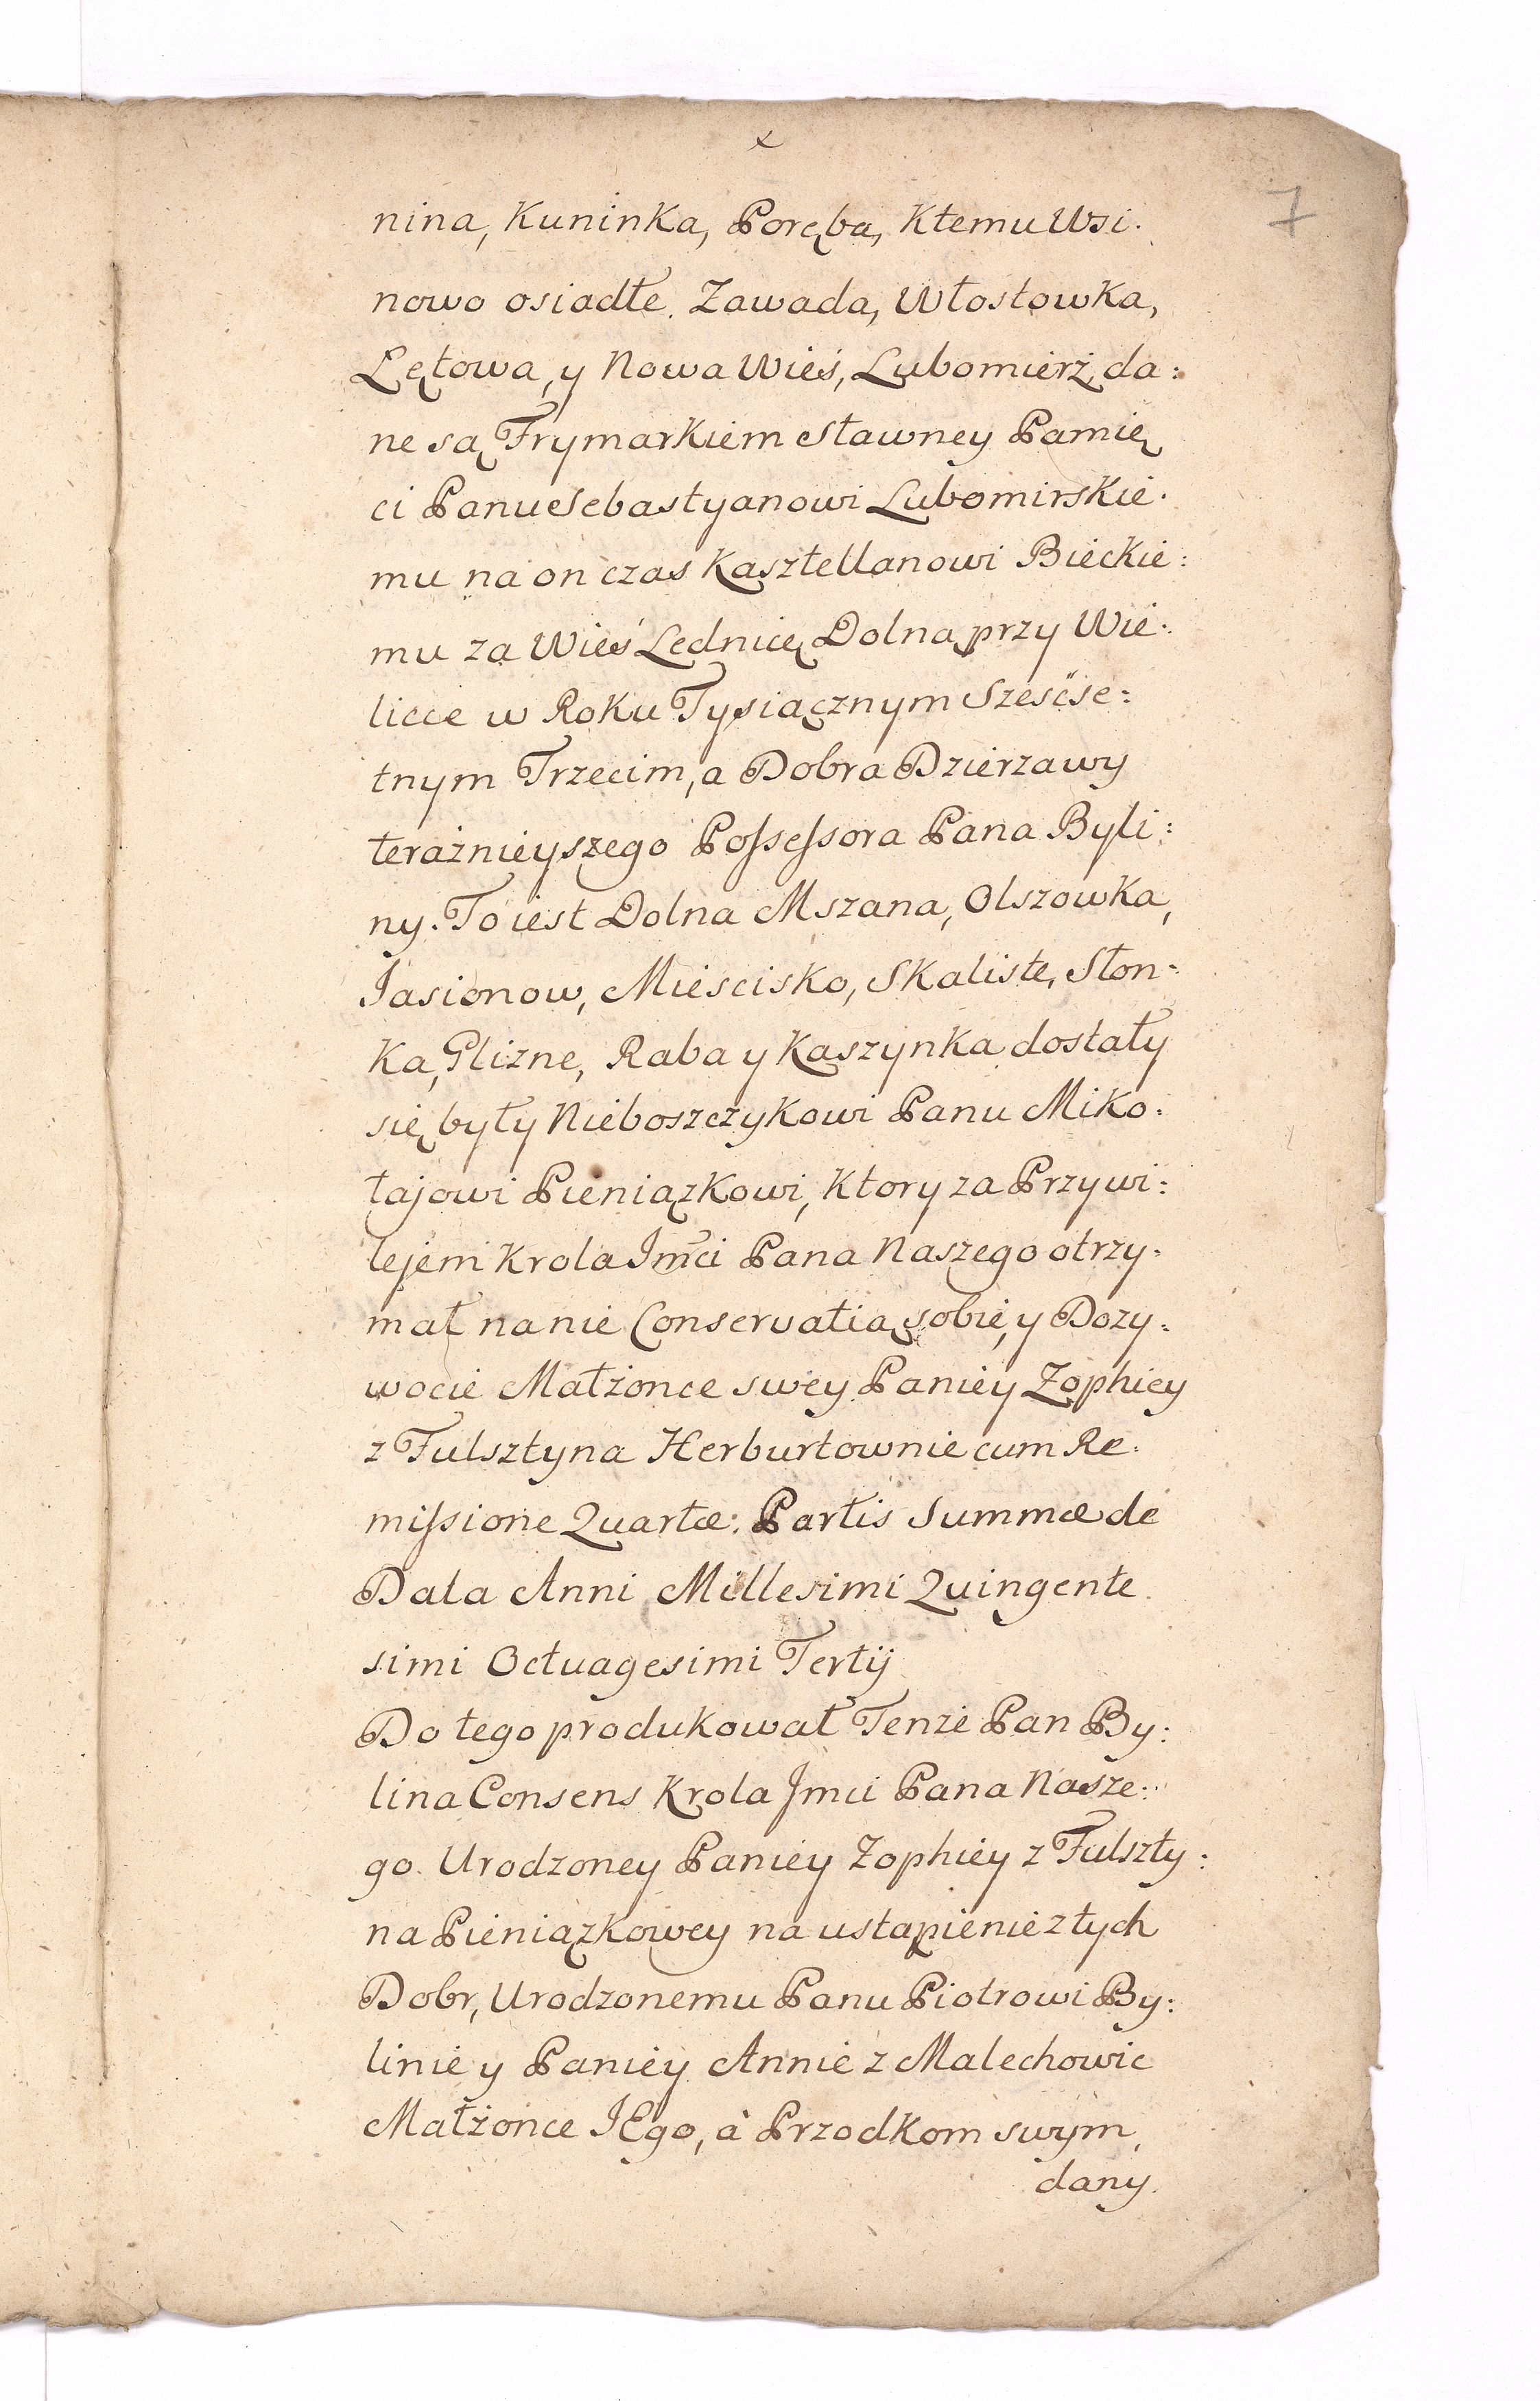 x
7
nina, Kuninka, Poręba, Ktemu Wsi.
nowo osiadłe. Zawada, Włostowka,
Łętowa, y Nowa Wieś, Lubomierż da:
ne są Frymarkiem Sławney Pamię
ci Panu Sebastyanowi Lubomirskie.
mu na on czas Kasztellanowi Bieckie:
mu za Wieś Lednicę Dolną przy Wie:
licce w Roku Tysiącznym Szesćse:
tnym Trzecim, a Dobra Dzierzawy
teraźnieyszego Possessora Pana Byli:
ny. To iest Dolna Mszana, Olszowka,
Jasionow, Miescisko, Skaliste, Słon:
ka, Glizne, Raba y Kaszynka dostały
się były Nieboszczykowi Panu Miko:
łajowi Pieniązkowi, Ktory za Przywi:
lejem Krola Jmci Pana Naszego otrzy:
mał na nie Conservatią sobie, y Dozy:
wocie Małżonce swey Paniey Zophiey
z Fulsztyna Herburtownie cum Re:
missione Quartæ: Partis Summæ de
Data Anni Millesimi Quingente
simi Octuagesimi Tertij
Do tego produkował Tenże Pan By:
lina Consens Krola Jmci Pana Nasze:
go. Urodzoney Paniey Zophiey z Fulszty:
na Pieniązkowey na ustąpienie z tych
Dobr, Urodzonemu Panu Piotrowi By:
linie y Paniey Annie z Malechowic
Małżonce JEgo, à Przodkom swym,
dany.